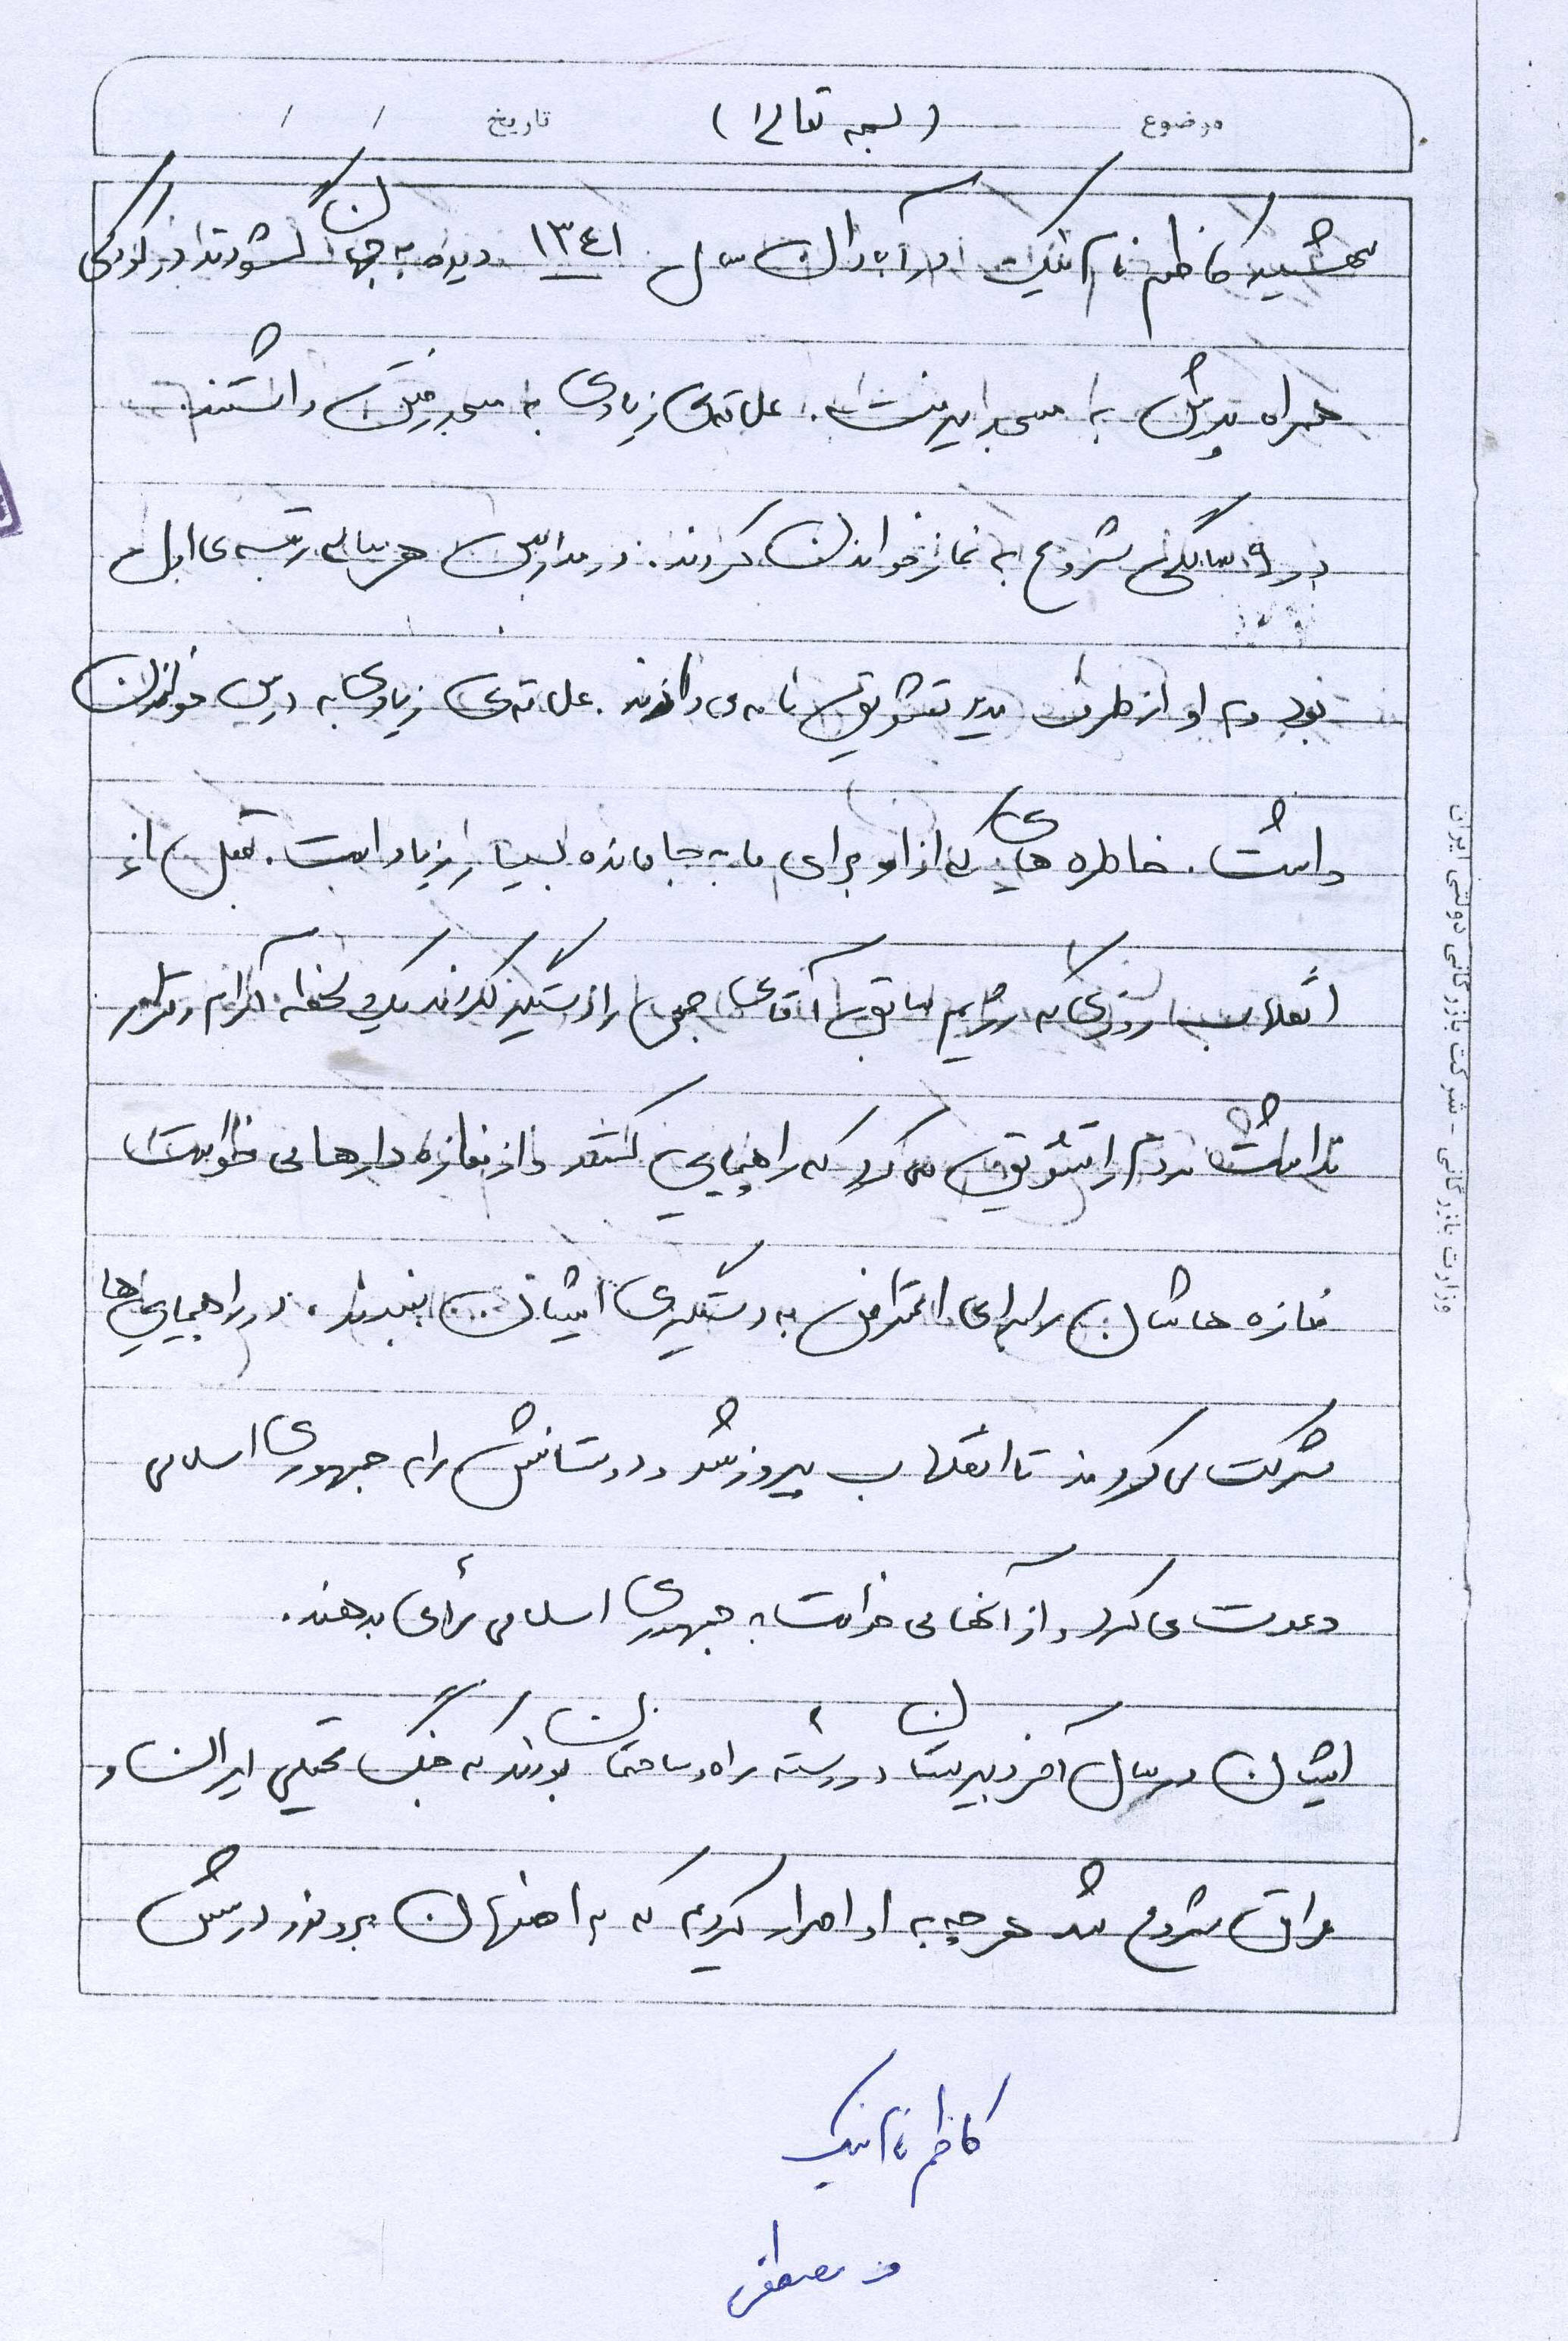 موضوع (بسمه تعالی) تاریخ / /
شهید کاظم نام نیک در آبادان سال ۱۳۴۱ دیده به جهان گشودند در کودکی
همراه پدرش به مسجد میرفت. علاقه‌ی زیادی به مسجد رفتن داشتند.
در ۹ سالگی شروع به نماز خواندن کردند. در مدارس هر ساله رتبه‌ی اول و
بود و به او از طرف مدیر تشویق نامه می دادند. علاقه‌ی زیادی به درس خواندن
داشت. خاطره هایی که از او برای ما به جا مانده بسیار زیاد است. قبل از
انقلاب روزی که رژیم سابق آقای جمی را دستگیر کردند یک لحظه آرام و قرار
نداشت مردم را تشویق می کرد که راهپیمایی کنند و از مغازه دارها می خواست
مغازه هاشان را برای اعتراض به دستگیری ایشان ببندند. در راهپیمایی ها
شرکت می کردند تا انقلاب پیروز شد و دوستانش را به جمهوری اسلامی
دعوت می کرد و از آنها می خواست به جمهوری اسلامی رأی بدهند.
ایشان در سال آخر دبیرستان در رشته راه و ساختمان بودند که جنگ تحمیلی ایران و
عراق شروع شد هر چه به او اصرار کردیم که به اصفهان برود و درسش
کاظم نام نیک
مصطفی
وزارت بازرگانی - شرکت بازرگانی دولتی ایران